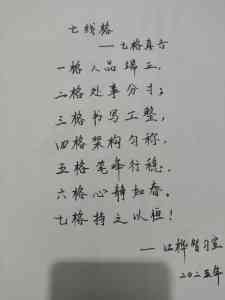 七线格
——七格真言
一格人品端正,
二格处事分寸;
三格书写工整,
四格架构匀称,
五格笔峰行稳,
六格心静如春,
七格持之以恒!
二〇二五年